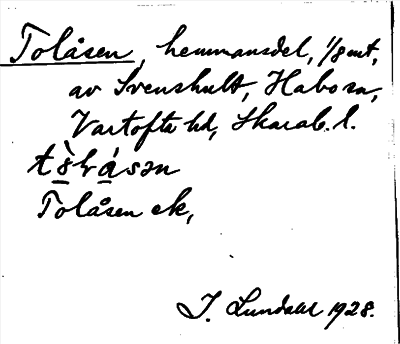 Tolåsen, hemmansdel, 1/8 mt,
av Svenshult, Habo sn,
Vartofta hd, Skarab. l.
Tolåsen ek,
J. Lundahl 1928.